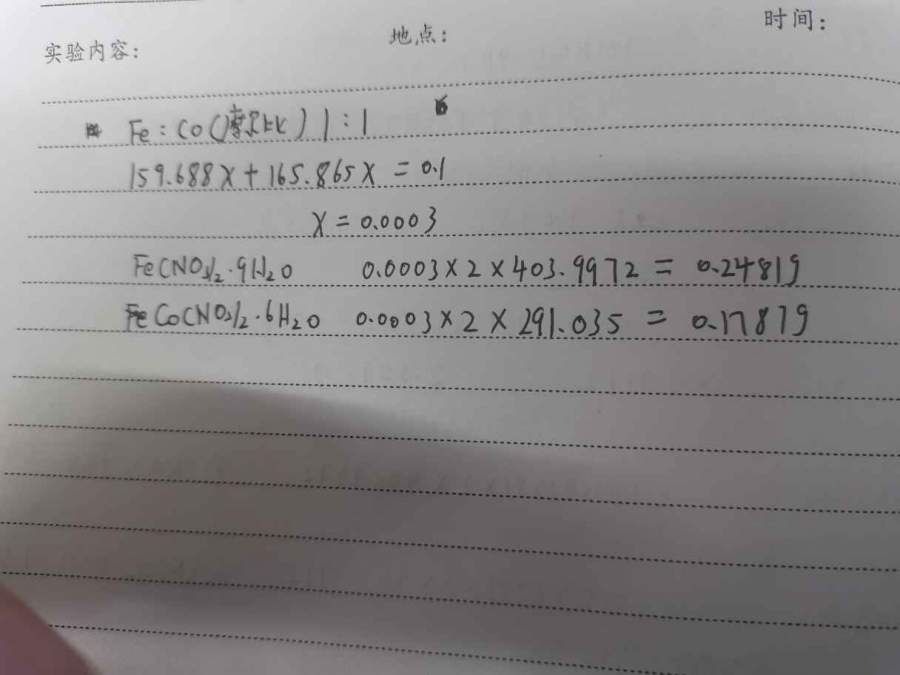 时间:
地点:
实验内容:
Fe : Co(摩尔比) 1 : 1
159.688X + 165.865X = 0.1
X = 0.0003
Fe(NO3)2·9H2O 0.0003 × 2 × 403.9972 = 0.2481g
Co(NO3)2·6H2O 0.0003 × 2 × 291.035 = 0.1787g